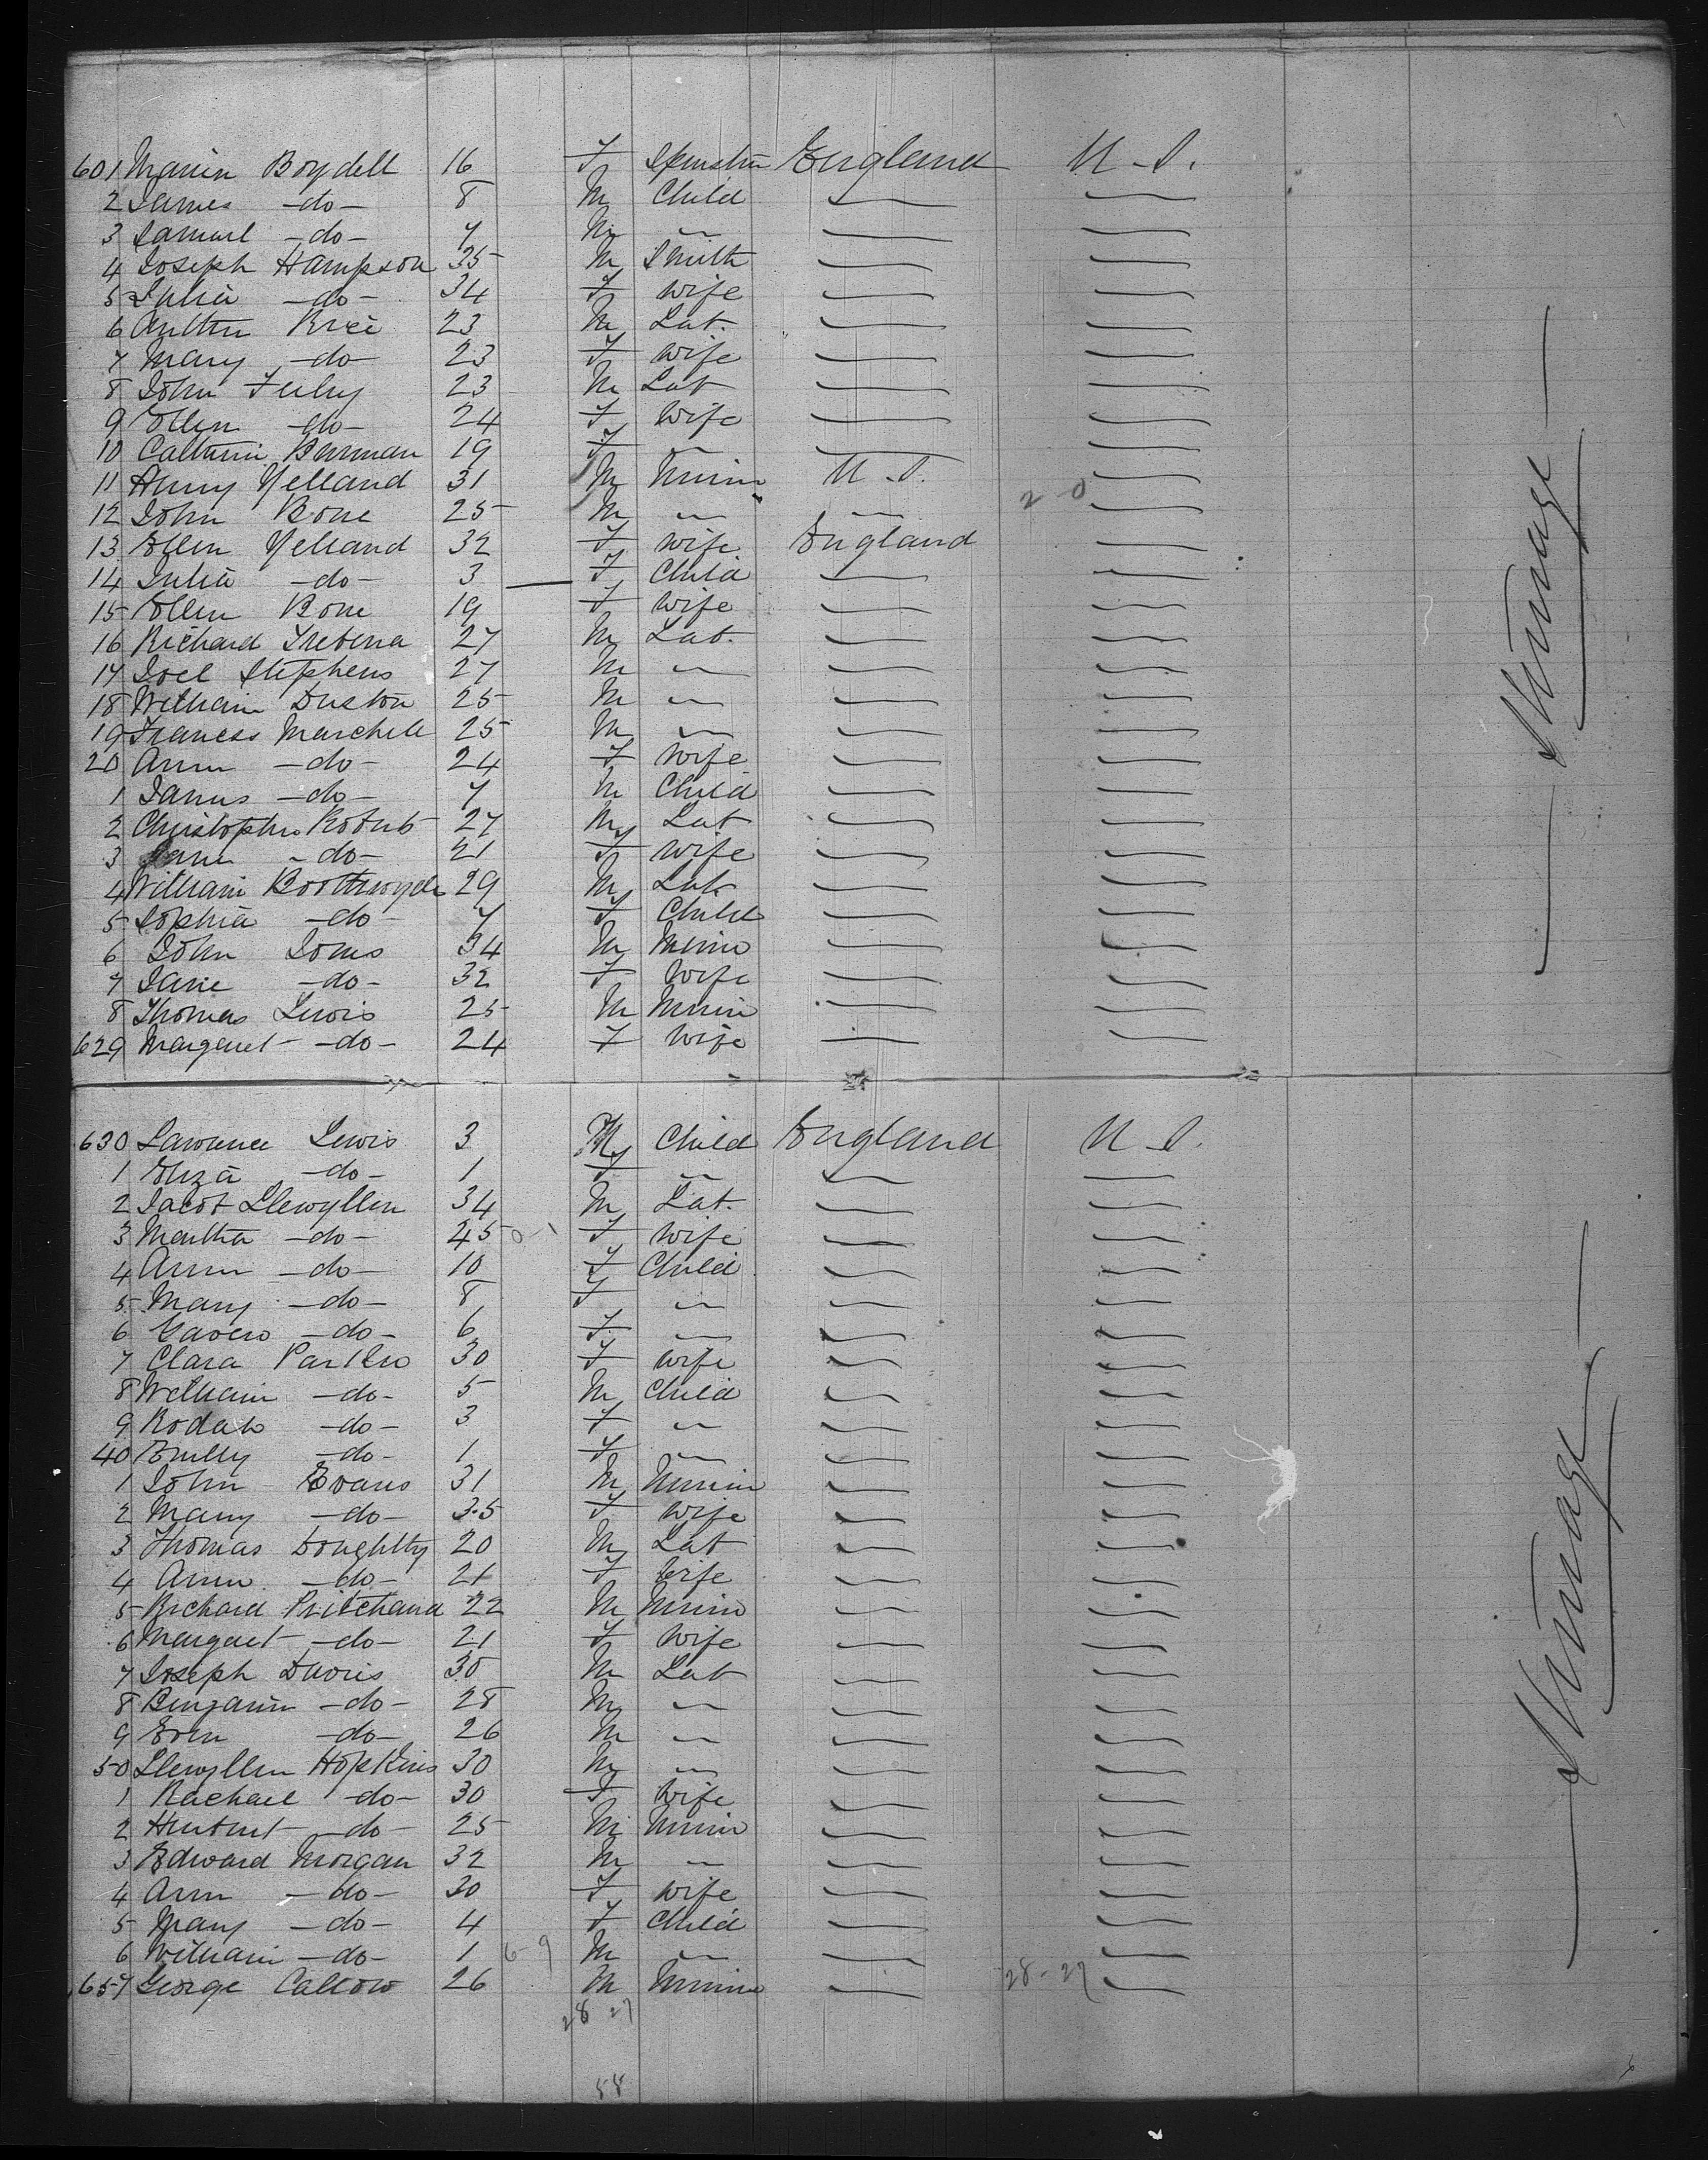 601 Maria Boydell 16 F Spinster England U.S.
2 James -do- 8 M Child
3 Samuel -do- 7 M "
4 Joseph Hampson 35 M Smith
5 Julia -do- 34 F Wife
6 23 M Lab.
7 Mary -do- 23 F Wife
8 John 23 M Lab
9 Ellen -do- 24 F Wife
10 19 F "
11 Henry Yelland 31 M Miner U.S.
12 John Bone 25 M " " 2-0
13 Ellen Yelland 32 F Wife England
14 Julia -do- 3 F Child
15 Ellen Bone 19 F Wife
16 Richard 27 M Lab.
17 Joel Stephens 27 M "
18 William Duston 25 M "
19 Francis 25 M "
20 Ann -do- 24 F Wife
1 James -do- 7 M Child
2 Christopher Roberts 27 M Lab
3 Jane -do- 21 F Wife
4 William 29 M Lab
5 Sophia -do- 7 F Child
6 John Jones 34 M Miner
7 Jane -do- 32 F Wife
8 Thomas Lewis 25 M Miner
629 Margaret -do- 24 F Wife
Steerage
630 Lawrence Lewis 3 M Child England U.S.
1 Eliza -do- 1 F "
2 Jacob Llewyllen 34 M Lab.
3 Martha -do- 45 F Wife
4 Ann -do- 10 F Child
5 Mary -do- 8 F "
6 -do- 6 F "
7 Clara 30 F Wife
8 William -do- 5 M Child
9 Rodah -do- 3 F "
40 Emily -do- 1 F "
1 John Evans 31 M Miner
2 Mary -do- 35 F Wife
3 Thomas Doughtty 20 M Lab
4 Ann -do- 21 F Wife
5 Richard Pritchard 22 M Miner
6 Margaret -do- 21 F Wife
7 Joseph Davis 30 M Lab
8 Benjamin -do- 28 M "
9 Even -do- 26 M "
50 Llewyllen Hopkins 30 M "
1 Rachael -do- 30 F Wife
2 Herbert -do- 25 M Miner
3 Edward Morgan 32 M "
4 Ann -do- 30 F Wife
5 Mary -do- 4 F Child
6 William -do- 1 6-9 M "
657 George Callow 26 M Miner 28-27
28 27
58
Steerage